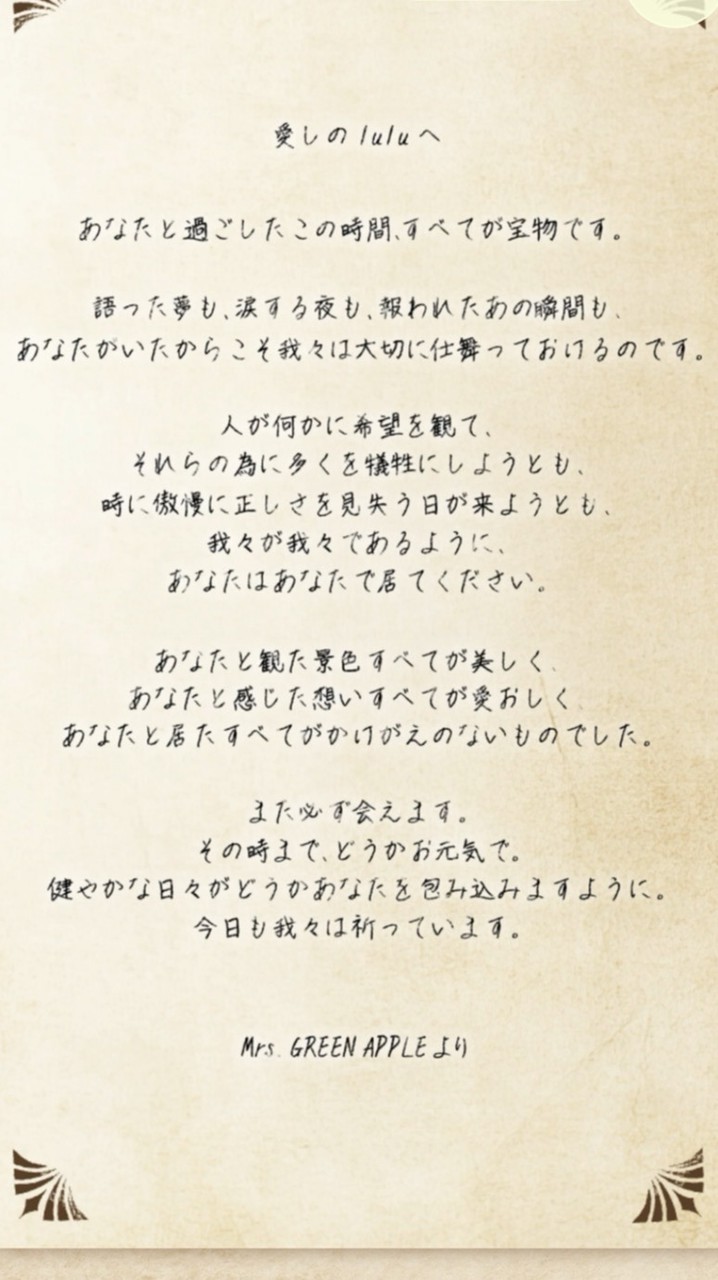 愛しのluluへ
あなたと過ごしたこの時間、すべてが宝物です。
語った夢も、涙する夜も、報われたあの瞬間も、
あなたがいたからこそ我々は大切に仕舞っておけるのです。
人が何かに希望を観て、
それらの為に多くを犠牲にしようとも、
時に傲慢に正しさを見失う日が来ようとも、
我々が我々であるように、
あなたはあなたで居てください。
あなたと観た景色すべてが美しく、
あなたと感じた想いすべてが愛おしく、
あなたと居たすべてがかけがえのないものでした。
また必ず会えます。
その時まで、どうかお元気で。
健やかな日々がどうかあなたを包み込みますように。
今日も我々は祈っています。
Mrs. GREEN APPLEより